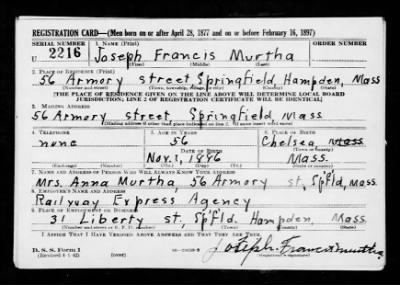 REGISTRATION CARD—(Men born on or after April 28, 1877 and on or before February 16, 1897)
SERIAL NUMBER 1. NAME (Print) ORDER NUMBER
U 2216 Joseph Francis Murtha
(First) (Middle) (Last)
2. PLACE OF RESIDENCE (Print)
56 Armory street, Springfield, Hampden, Mass
(Number and street) (Town, township, village, or city) (County) (State)
[THE PLACE OF RESIDENCE GIVEN ON THE LINE ABOVE WILL DETERMINE LOCAL BOARD
JURISDICTION; LINE 2 OF REGISTRATION CERTIFICATE WILL BE IDENTICAL]
3. MAILING ADDRESS
56 Armory street Springfield, Mass
[Mailing address if other than place indicated on line 2. If same insert word same]
4. TELEPHONE 5. AGE IN YEARS 6. PLACE OF BIRTH
none 56 Chelsea Mass.
DATE OF BIRTH (Town or county)
Nov. 1, 1886 Mass.
(Exchange) (Number) (Mo.) (Day) (Yr.) (State or country)
7. NAME AND ADDRESS OF PERSON WHO WILL ALWAYS KNOW YOUR ADDRESS
Mrs. Anna Murtha, 56 Armory st, Spfld, Mass.
8. EMPLOYER'S NAME AND ADDRESS
Railway Express Agency
9. PLACE OF EMPLOYMENT OR BUSINESS
31 Liberty st, Spfld. Hampden, Mass.
(Number and street or R. F. D. number) (Town) (County) (State)
I AFFIRM THAT I HAVE VERIFIED ABOVE ANSWERS AND THAT THEY ARE TRUE.
D. S. S. Form 1
(over) Joseph Francis Murtha